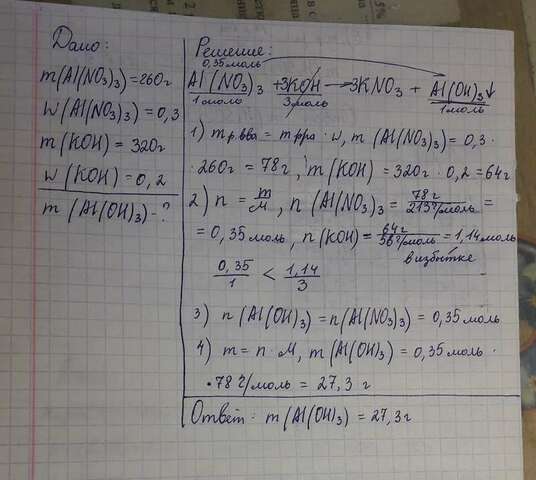 Дано:
m(Al(NO₃)₃)=260г
W(Al(NO₃)₃)=0,3
m(KOH)=320г
W(KOH)=0,2
m(Al(OH)₃)-?
Решение:
0,35моль
Al(NO₃)₃ +3KOH → 3KNO₃ + Al(OH)₃↓
1моль 3моль 1моль
1) mр.вва = mрра · w, m(Al(NO₃)₃)= 0,3 ·
· 260г = 78г, m(KOH) = 320г · 0,2 = 64г
2) n = m/M, n(Al(NO₃)₃ = 78г/213г/моль =
= 0,35моль, n(KOH)= 64г/56г/моль = 1,14моль
в избытке
0,35/1 < 1,14/3
3) n(Al(OH)₃)=n(Al(NO₃)₃) = 0,35 моль
4) m = n · M, m(Al(OH)₃) = 0,35моль ·
· 78г/моль = 27,3 г
Ответ: m(Al(OH)₃) = 27,3г